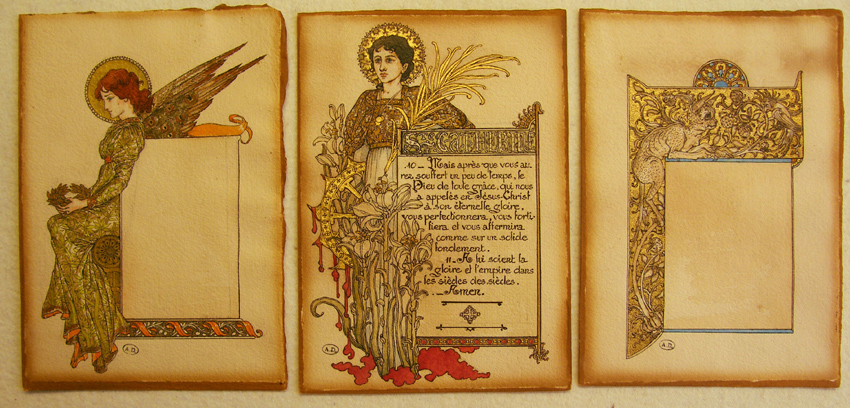 Ste Catherine
10 _ Mais après que vous au
rez souffert un peu de temps, le
Dieu de toute grâce, qui nous
a appelés en Jésus-Christ
à son éternelle gloire,
vous perfectionnera, vous forti-
fiera et vous affermira
comme sur un solide
fondement.
11 _ A lui soient la
gloire et l'empire dans
les siècles des siècles.
_ Amen.
A.D.
A.D.
A.D.